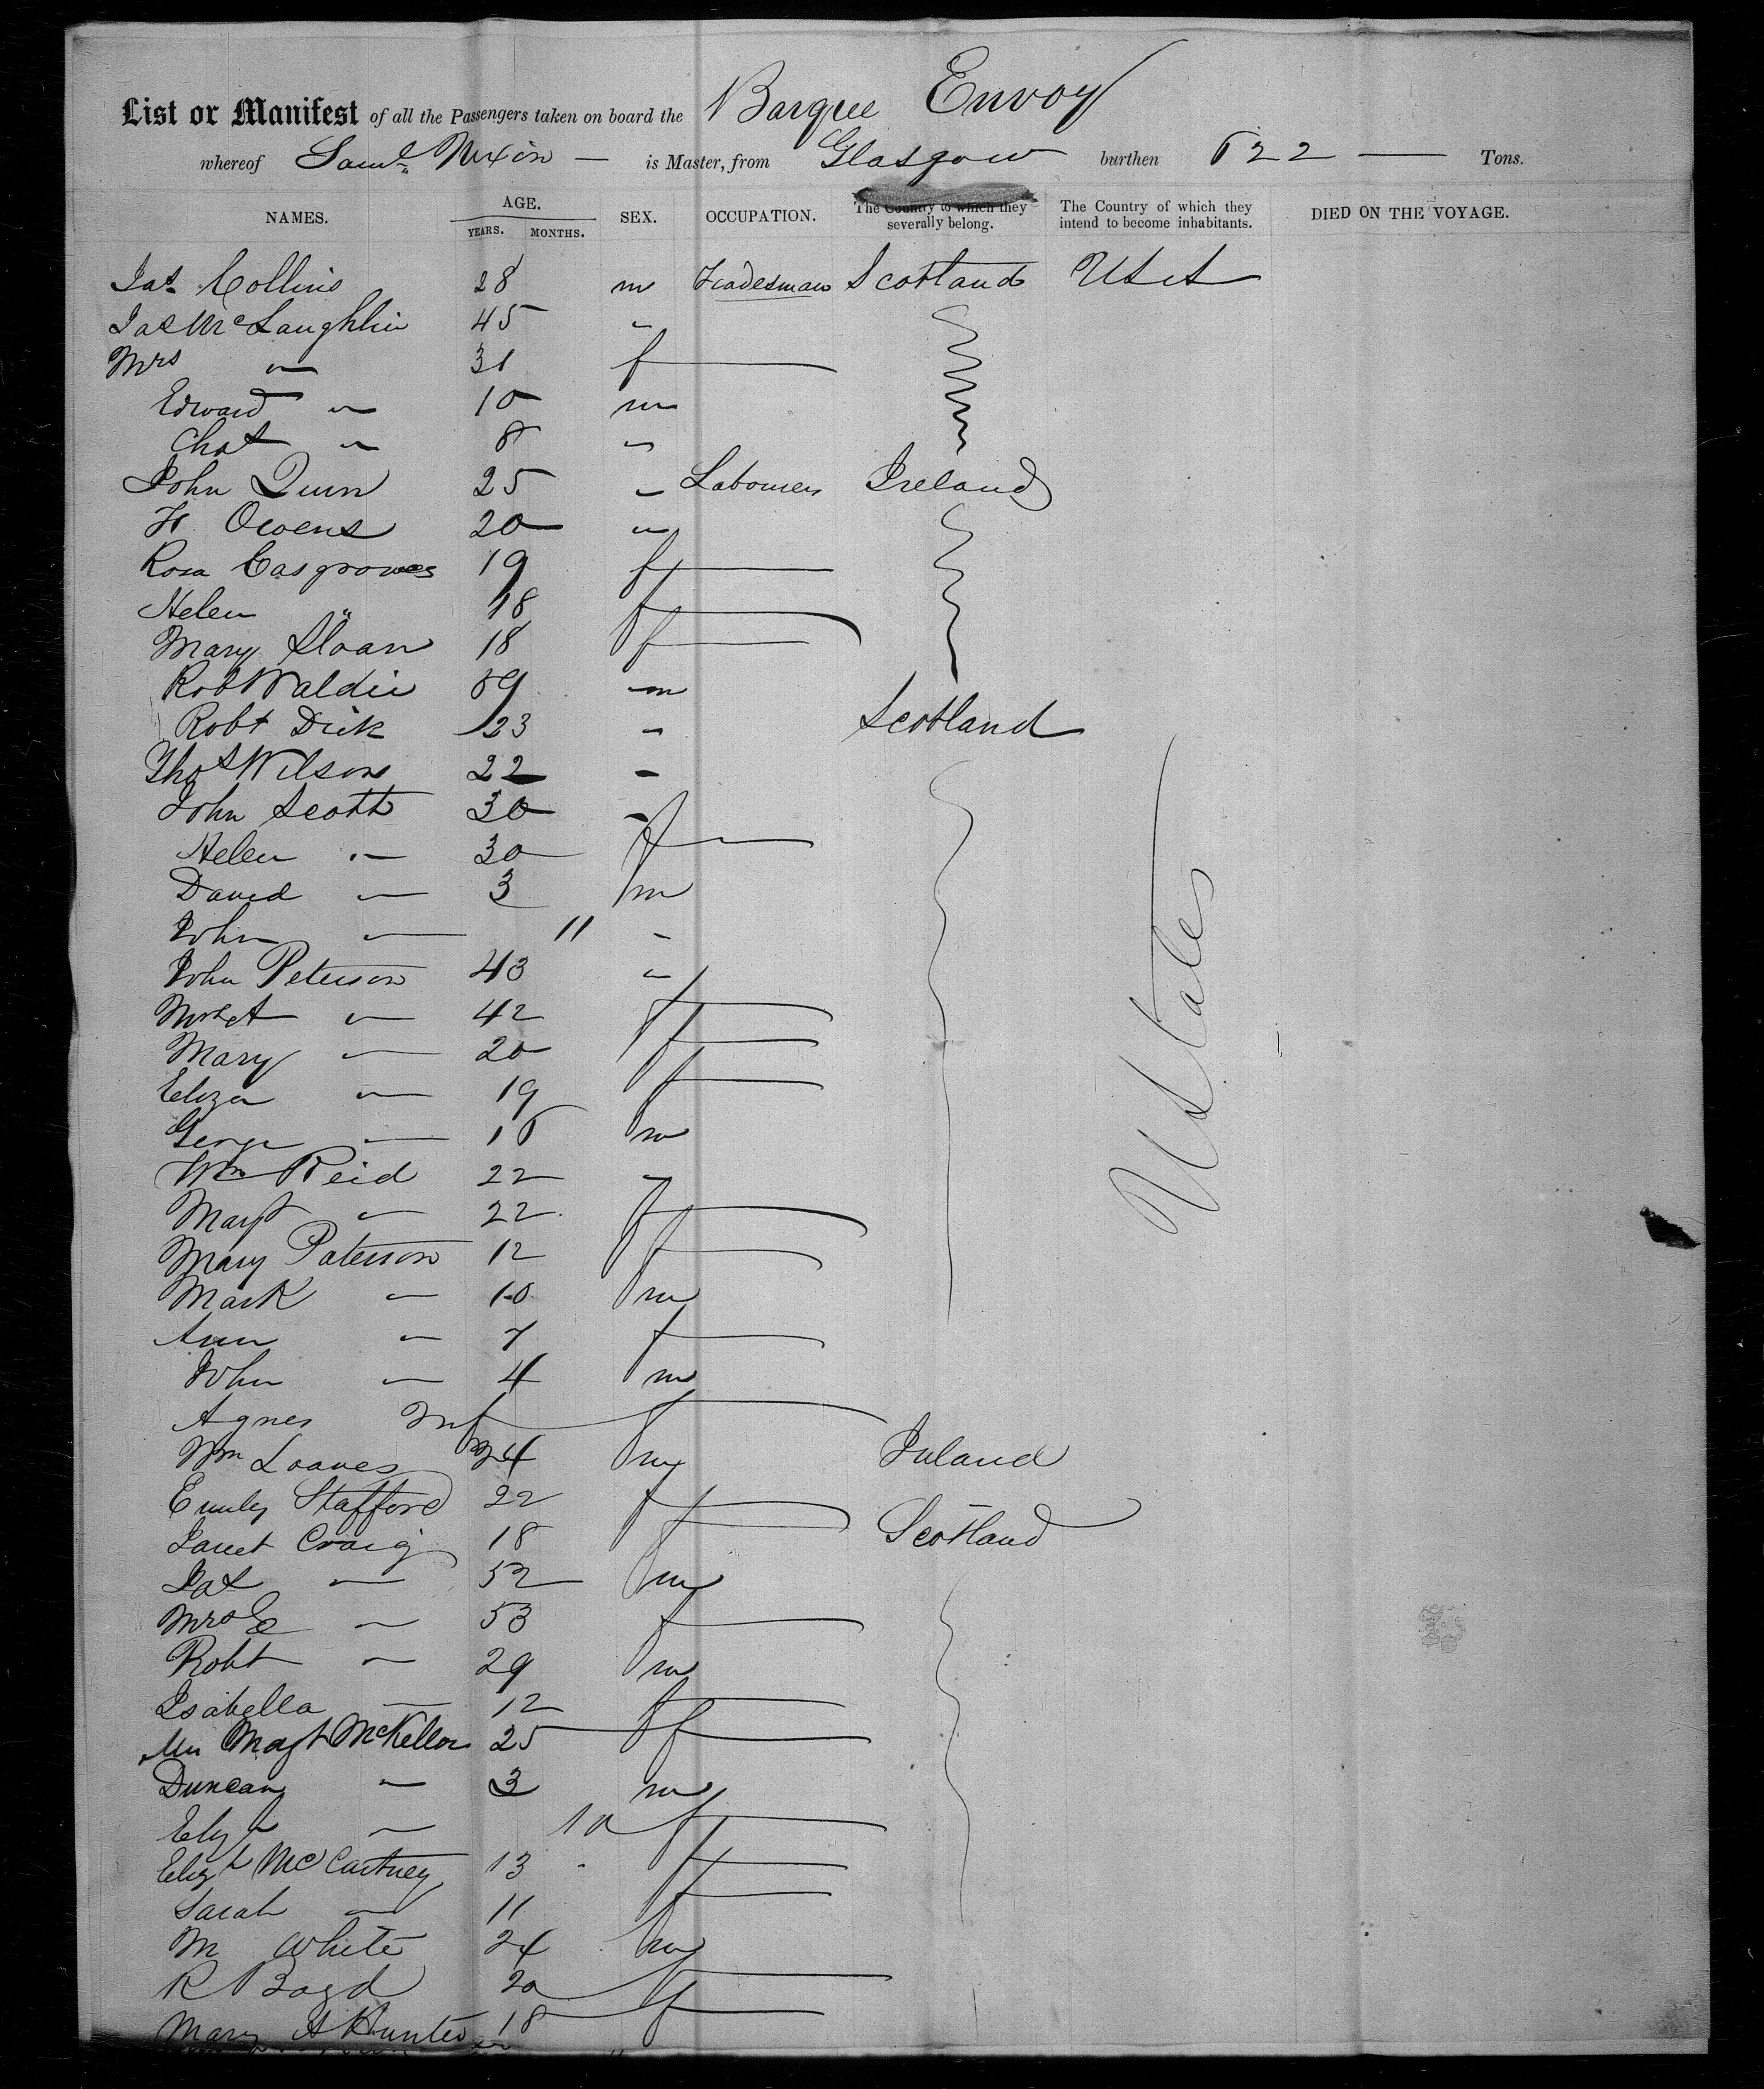 List or Manifest of all the Passengers taken on board the Barque Envoy
whereof Saml Nixon — is Master, from Glasgow burthen 622 — Tons.
NAMES. AGE. YEARS. MONTHS. SEX. OCCUPATION. The Country to which they severally belong. The Country of which they intend to become inhabitants. DIED ON THE VOYAGE.
Jas Collins 28 m Tradesman Scotland U S A
Jas McLaughlin 45 "
Mrs " 31 f
Edward " 10 m
Chas " 8 "
John Quin 25 " Labourers Ireland
H Owens 20 "
Rosa Casgroves 19 f
Helen " 18 f
Mary Sloan 18 f
Rob Waldie 59 m
Robt Dick 23 " Scotland
Thos Wilson 22 "
John Scott 30 "
Helen " 30 f
David " 3 m
John " 11 "
John Peterson 43 "
Mrs A " 42 f
Mary " 20 f
Eliza " 19 f
George " 16 m
U States
Wm Reid 22 "
Mart " 22 f
Mary Paterson 12 f
Mark " 10 m
Ann " 7 f
John " 4 m
Agnes Inf f
Wm Loaves 24 m Ireland
Emily Stafford 22 f
Janet Craig 18 f Scotland
Jas " 52 m
Mrs E " 53 f
Robt " 29 m
Isabella " 12 f
Mrs Magt McKellor 25 f
Duncan " 3 m
Elizt " 10 f
Elizt McCartney 13 f
Sarah " 11 f
M White 24 m
R Boyd 20 f
Mary A Hunter 18 f